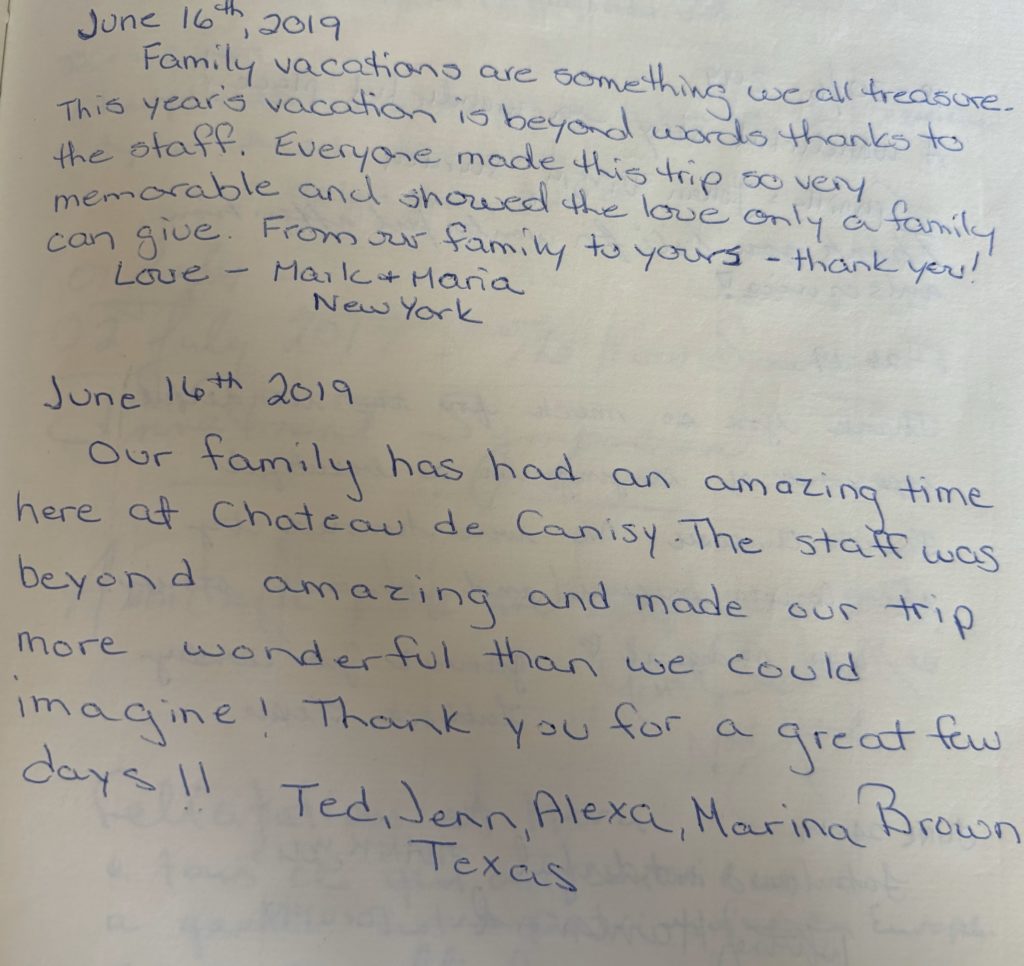 June 16th, 2019
Family vacations are something we all treasure.
This year's vacation is beyond words thanks to
the staff. Everyone made this trip so very
memorable and showed the love only a family
can give. From our family to yours - thank you!
Love - Mark + Maria
New York
June 16th 2019
Our family has had an amazing time
here at Chateau de Canisy. The staff was
beyond amazing and made our trip
more wonderful than we could
imagine! Thank you for a great few
days!!
Ted, Jenn, Alexa, Marina Brown
Texas